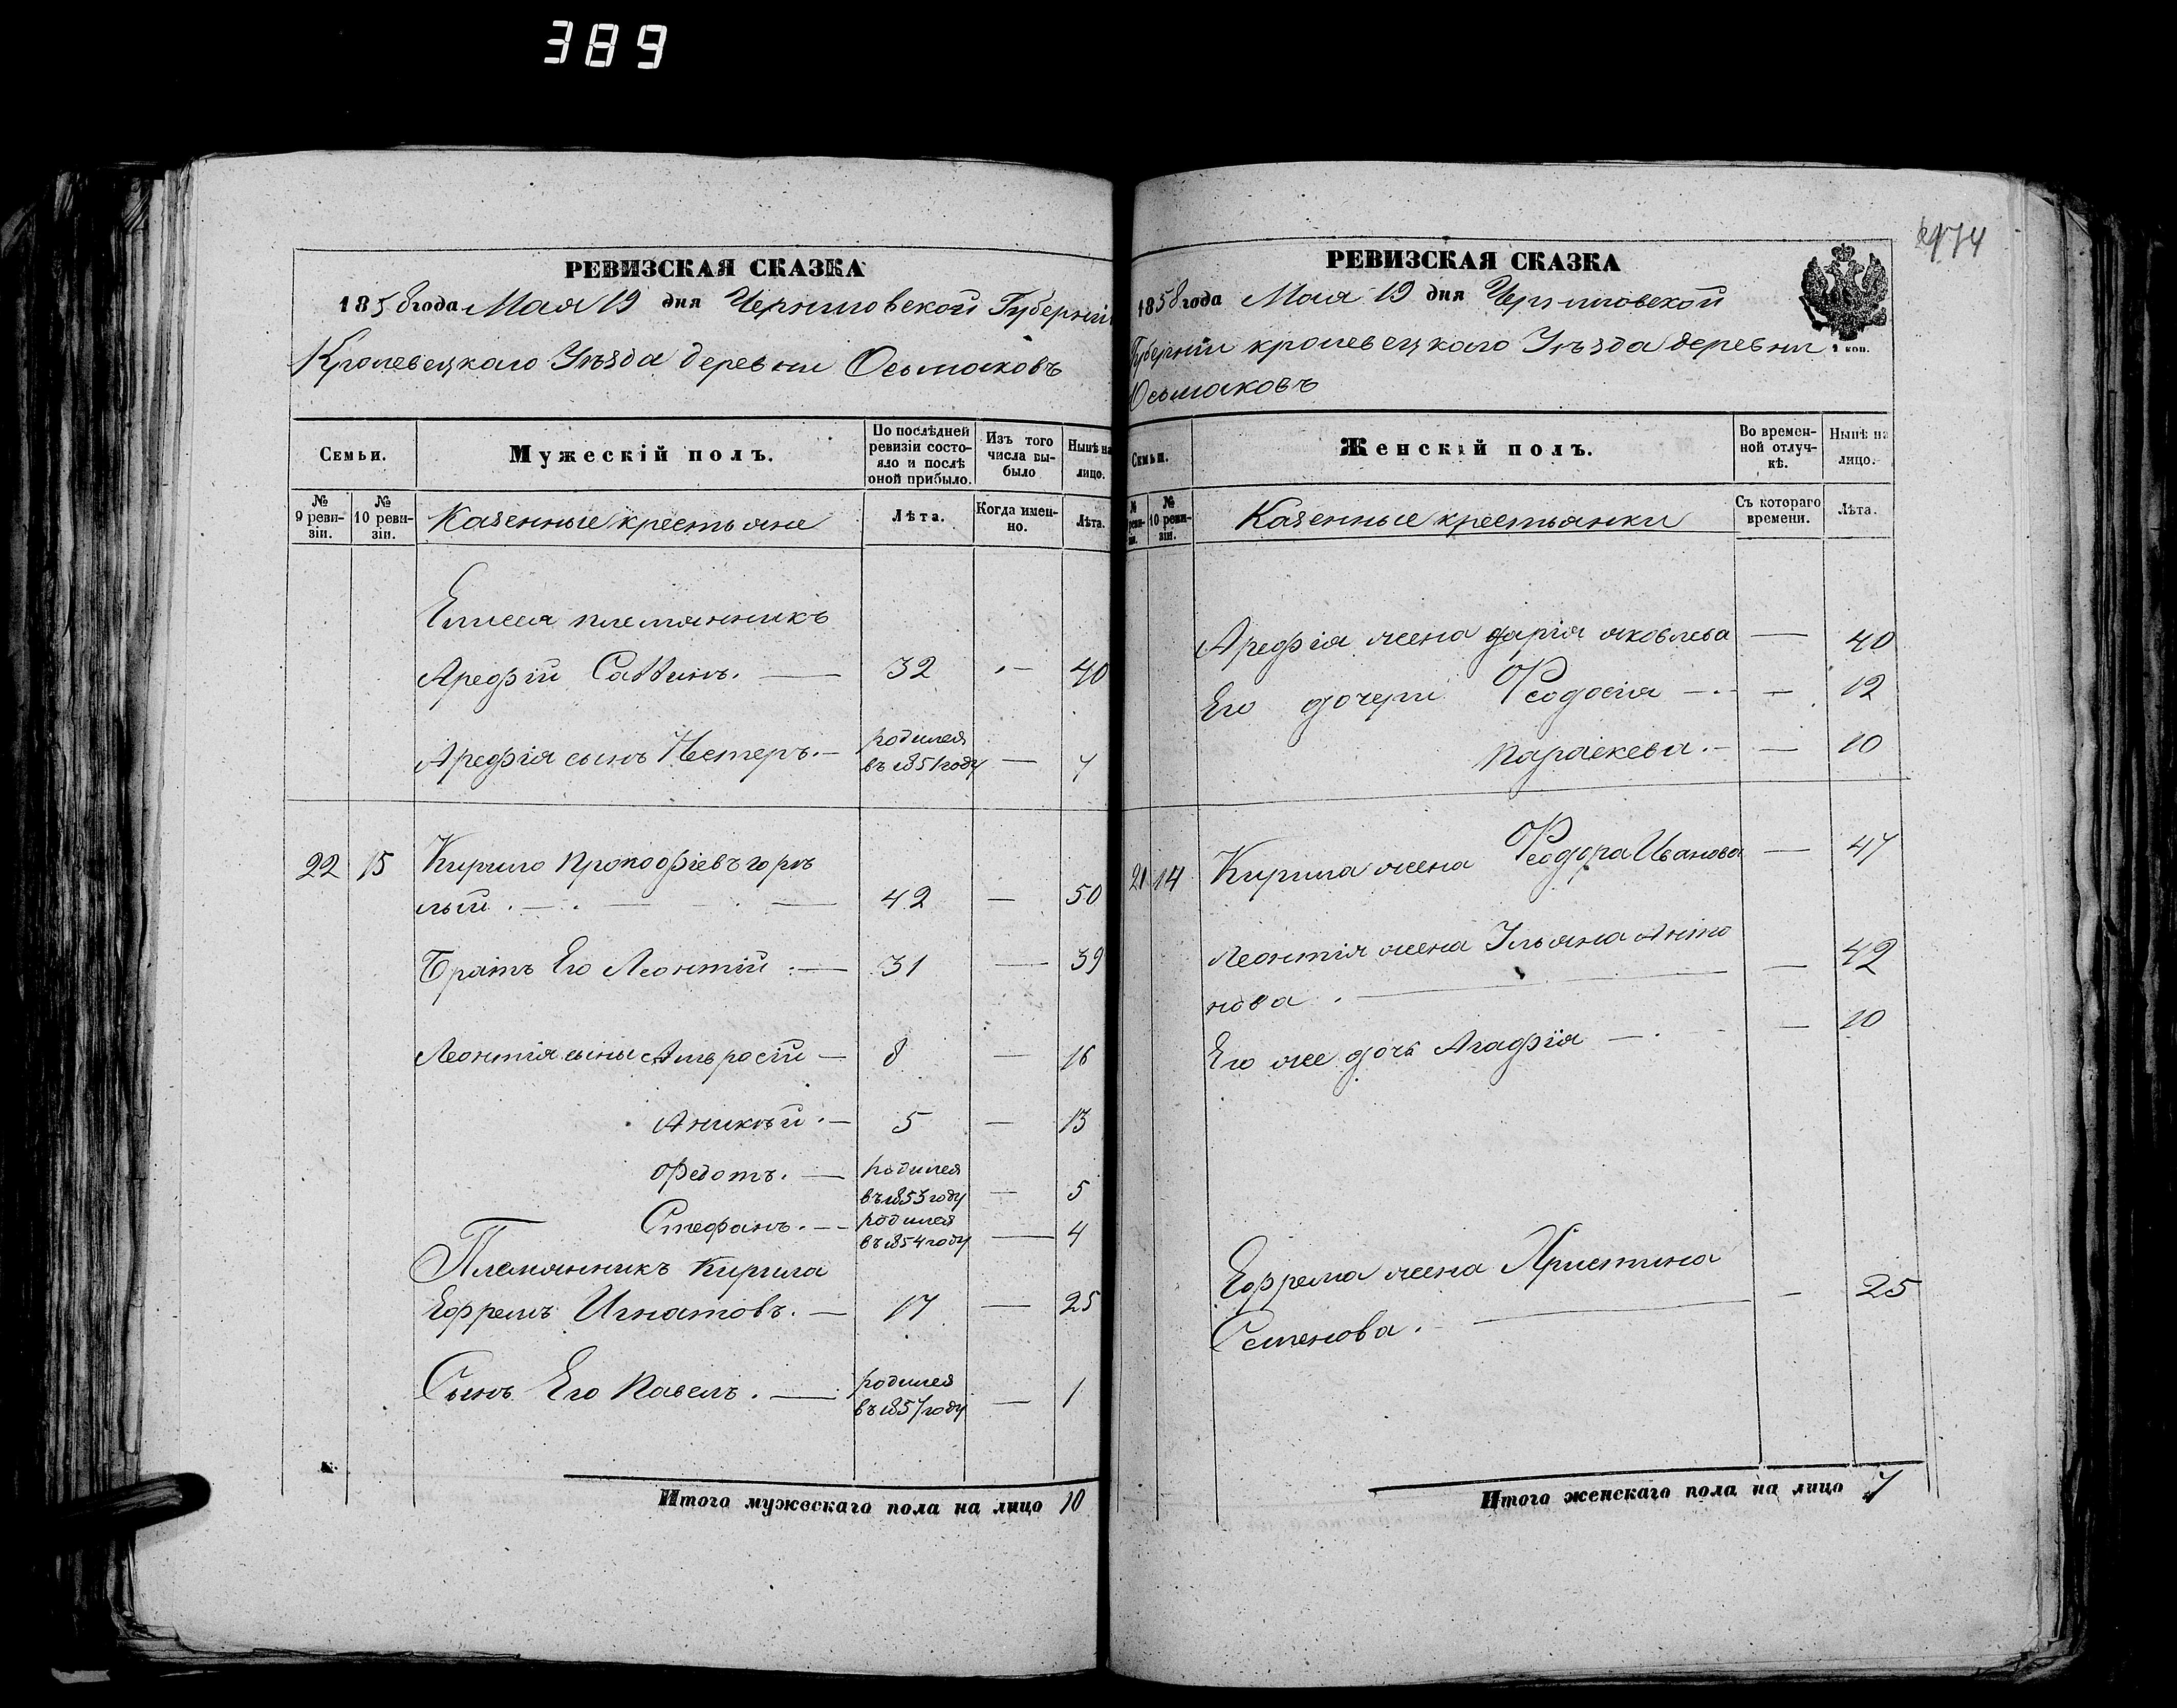 389
РЕВИЗСКАЯ СКАЗКА
1858 года Мая 19 дня Черниговской Губерніи
Кролевецкаго Уѣзда деревни Осьмаковъ
Семьи.
Мужескій полъ.
По послѣдней ревизіи состояло и послѣ оной прибыло.
Изъ того числа выбыло
Нынѣ на лицо.
№ 9 ревизіи.
№ 10 ревизіи.
Казенные крестьяне
Лѣта.
Когда именно.
Лѣта.
Елисея племянникъ
Арефій Саввинъ. — 32 — 40
Арефія сынъ Нестеръ. — родился въ 1851 году — 7
22 15 Кирило Прокофіевъ горѣ
лый . — 42 — 50
Братъ Его Леонтій . — 31 — 39
Леонтія сыны Амвросій — 8 — 16
Аникѣй . — 5 — 13
Федотъ. — родился въ 1853 году — 5
Стефанъ. — родился въ 1854 году — 4
Племянникъ Кирила
Ефремъ Игнатовъ. — 17 — 25
Сынъ Его Павелъ . — родился въ 1857 году — 1
Итого мужескаго пола на лицо 10
474
РЕВИЗСКАЯ СКАЗКА
1858 года Мая 19 дня Черниговской
Губерніи кролевецкаго Уѣзда деревни
Осьмаковъ
коп.
Семьи.
Женскій полъ.
Во временной отлучкѣ.
Нынѣ на лицо.
№ реви-
№ 10 ревизіи.
Казенные крестьянки
Съ котораго времени.
Лѣта.
Арефія жена дарія яковлева — 40
Его дочери Феодосія — — 12
Параскева. — — 10
21 14 Кирила жена Феодора Иванова — 47
Леонтія жена Ульяна Анто
нова . — — 42
Его же дочь Агафія — — 10
Ефрема жена Христина
Семенова . — — 25
Итого женскаго пола на лицо 7